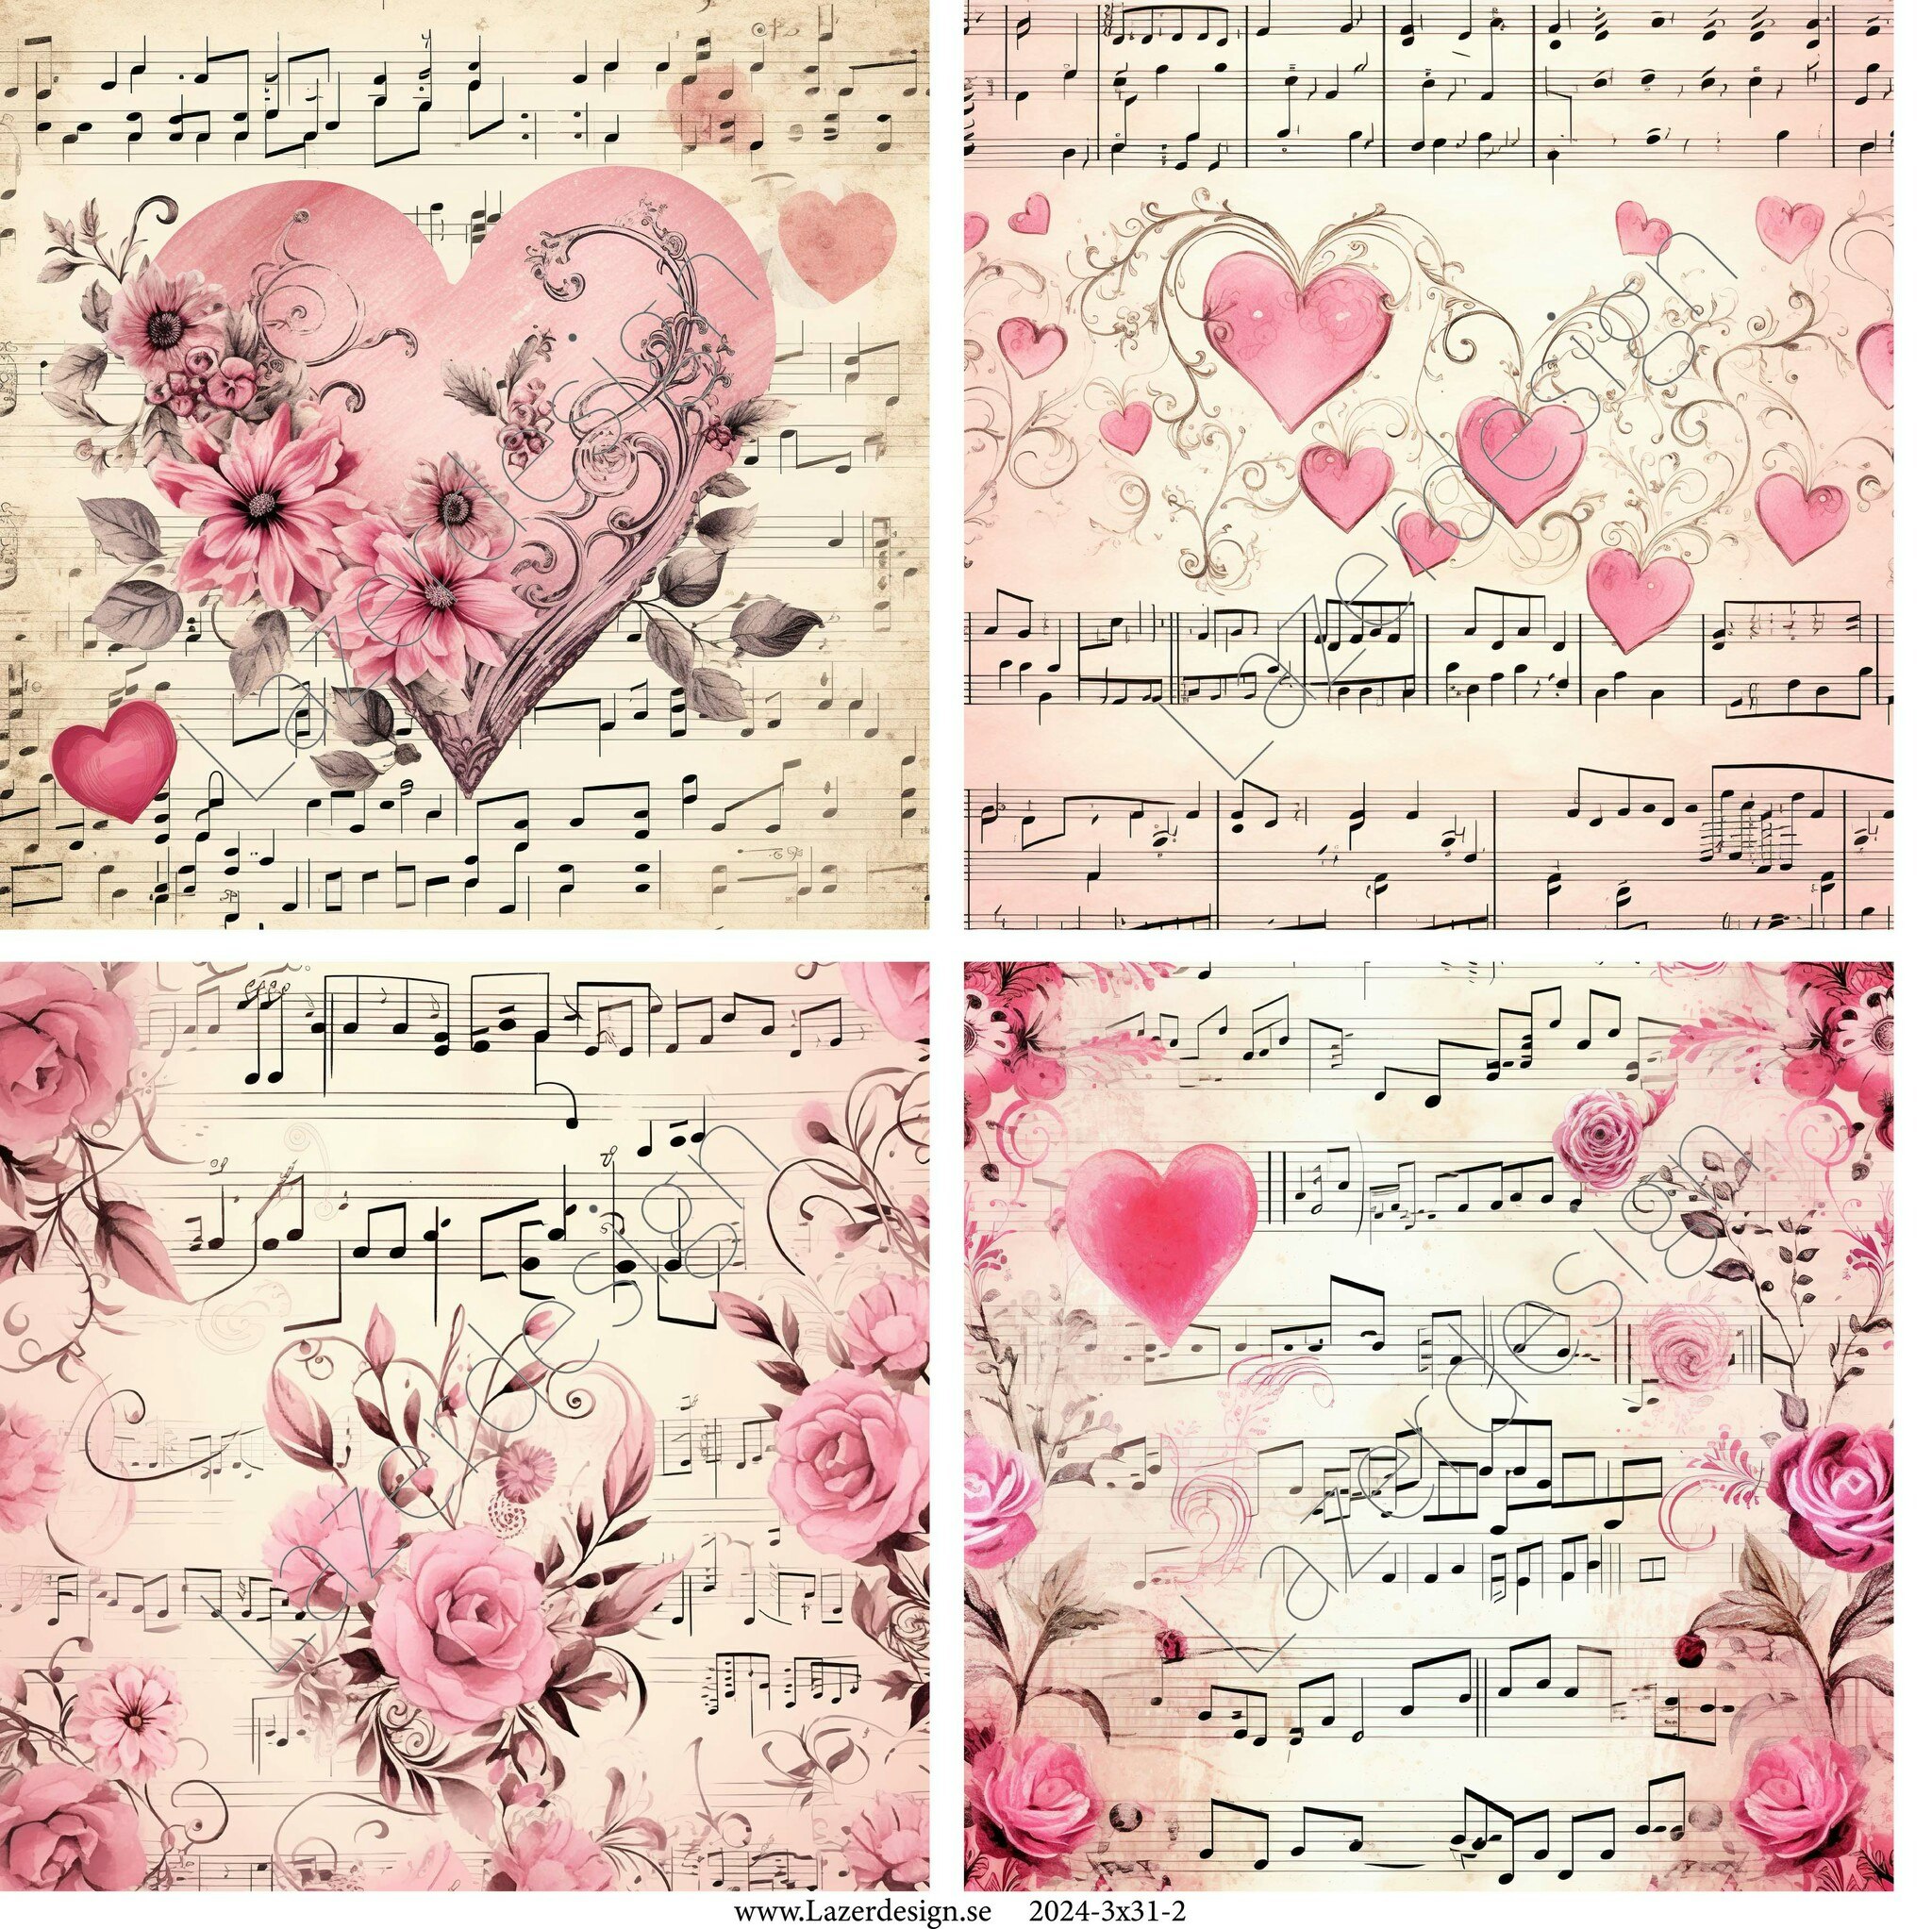 Lazerdesign
Lazerdesign
Lazerdesign
Lazerdesign
www.Lazerdesign.se 2024-3x31-2